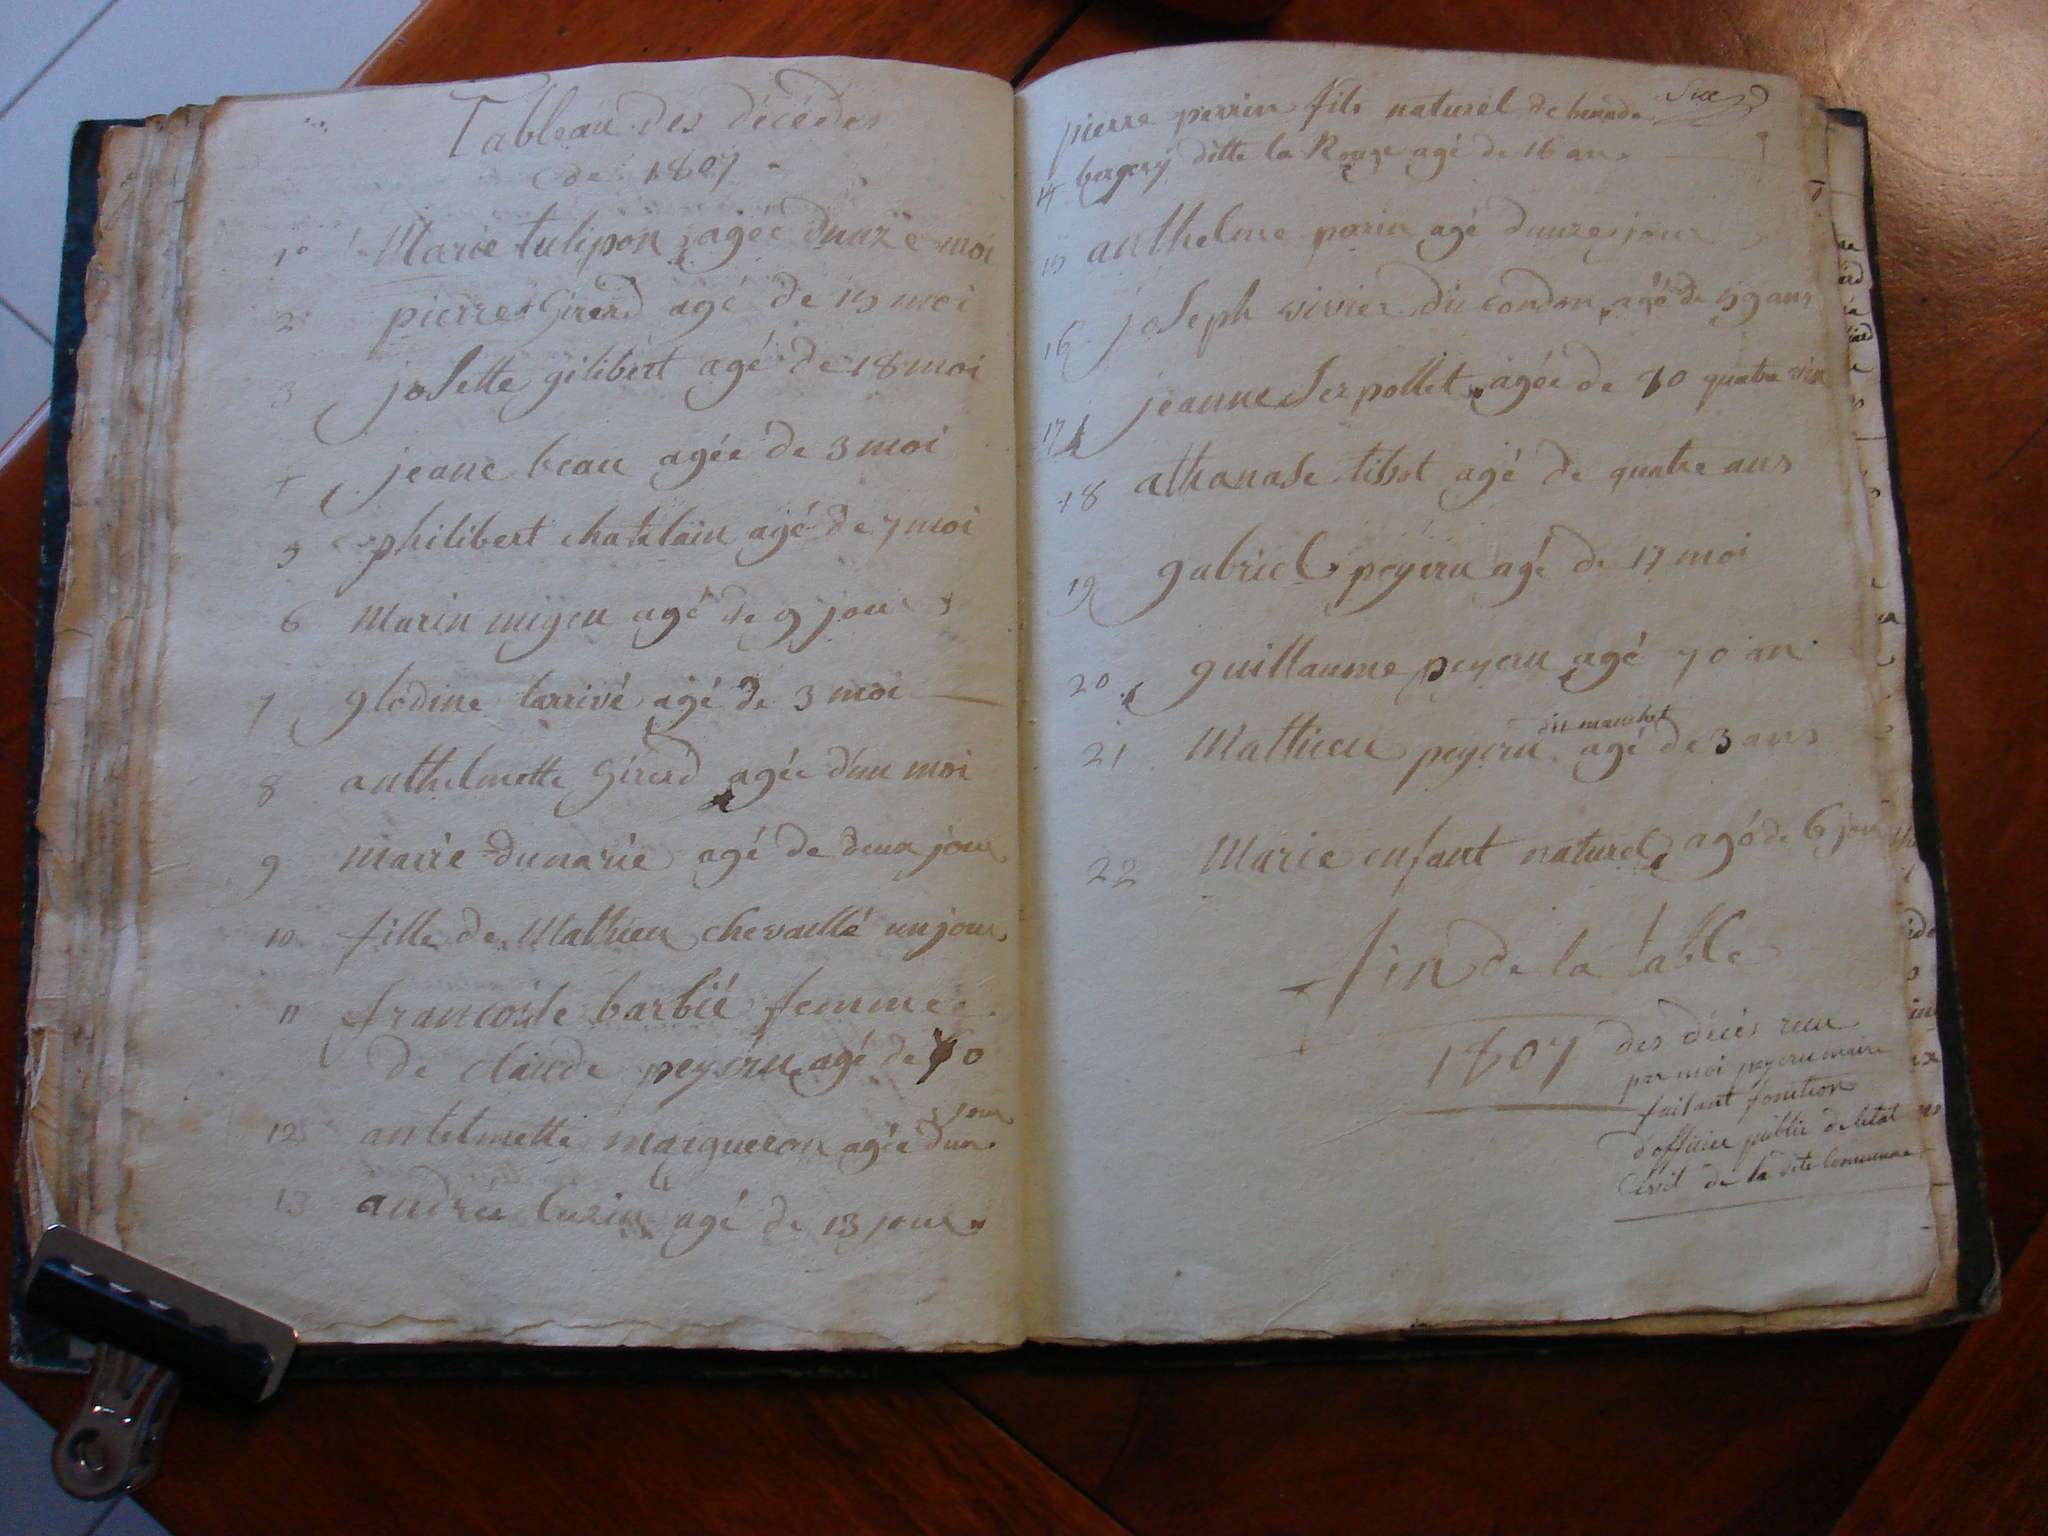 Tableau des décédés
de 1807
1° Marie tulipon agée dunze moi
2 pierre Girerd agé de 15 moi
3 josette gilibert agé de 18 moi
4 jeane beau agée de 3 moi
5 philibert chatelain agé de 7 moi
6 Marin migeu agé de 9 jours
7 glodine larrivé agé de 3 moi
8 anthelmette Girerd agée d'un moi
9 marie dunarie agé de deux jour
10 fille de Mathieu chevaillé un jour
11 francoise barbié femme
de claude peyeru agé de
3 jour
12 antelmette margueron agée d'un
13 andrée agé de 13 jour
pierre perrin fils naturel de
14 bergery ditte la Rouge agé de 16 ans
15 anthelme parin agé dunze jour
16 joseph vivier du condon agé de 59 ans
17 jeanne Serpollet agée de 80 quatre vin
18 athanase tissot agé de quatre ans
19 gabriel peyeru agé de 17 moi
20 guillaume peyeru agé 70 an
du manchet
21 Mathieu peyeru agé de 3 ans
22 Marie enfant naturel agé de 6 jour
fin de la table
1807 des décès
par moi peyeru maire
faisant fonction
d'officier public de letat
Civil de la dite Commune